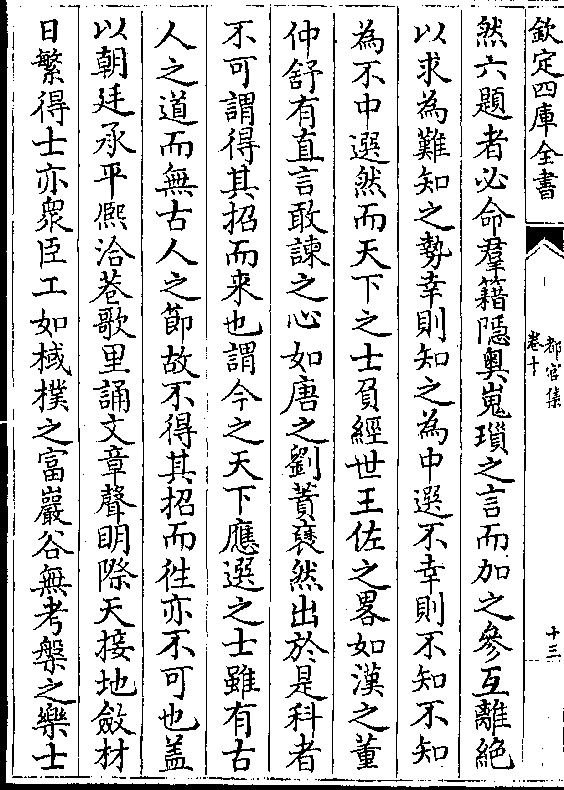 欽定四庫全書
都官集
卷十
十三
然六題者必命羣籍隱奧嵬瑣之言而加之參互離絶
以求為難知之勢幸則知之為中選不幸則不知不知
為不中選然而天下之士負經世王佐之畧如漢之董
仲舒有直言敢諫之心如唐之劉蕡裒然出於是科者
不可謂得其招而来也謂今之天下應選之士雖有古
人之道而無古人之節故不得其招而徃亦不可也盖
以朝廷承平熈洽巷歌里誦文章聲眀際天接地斂材
日繁得士亦衆臣工如棫樸之富巖谷無考槃之樂士